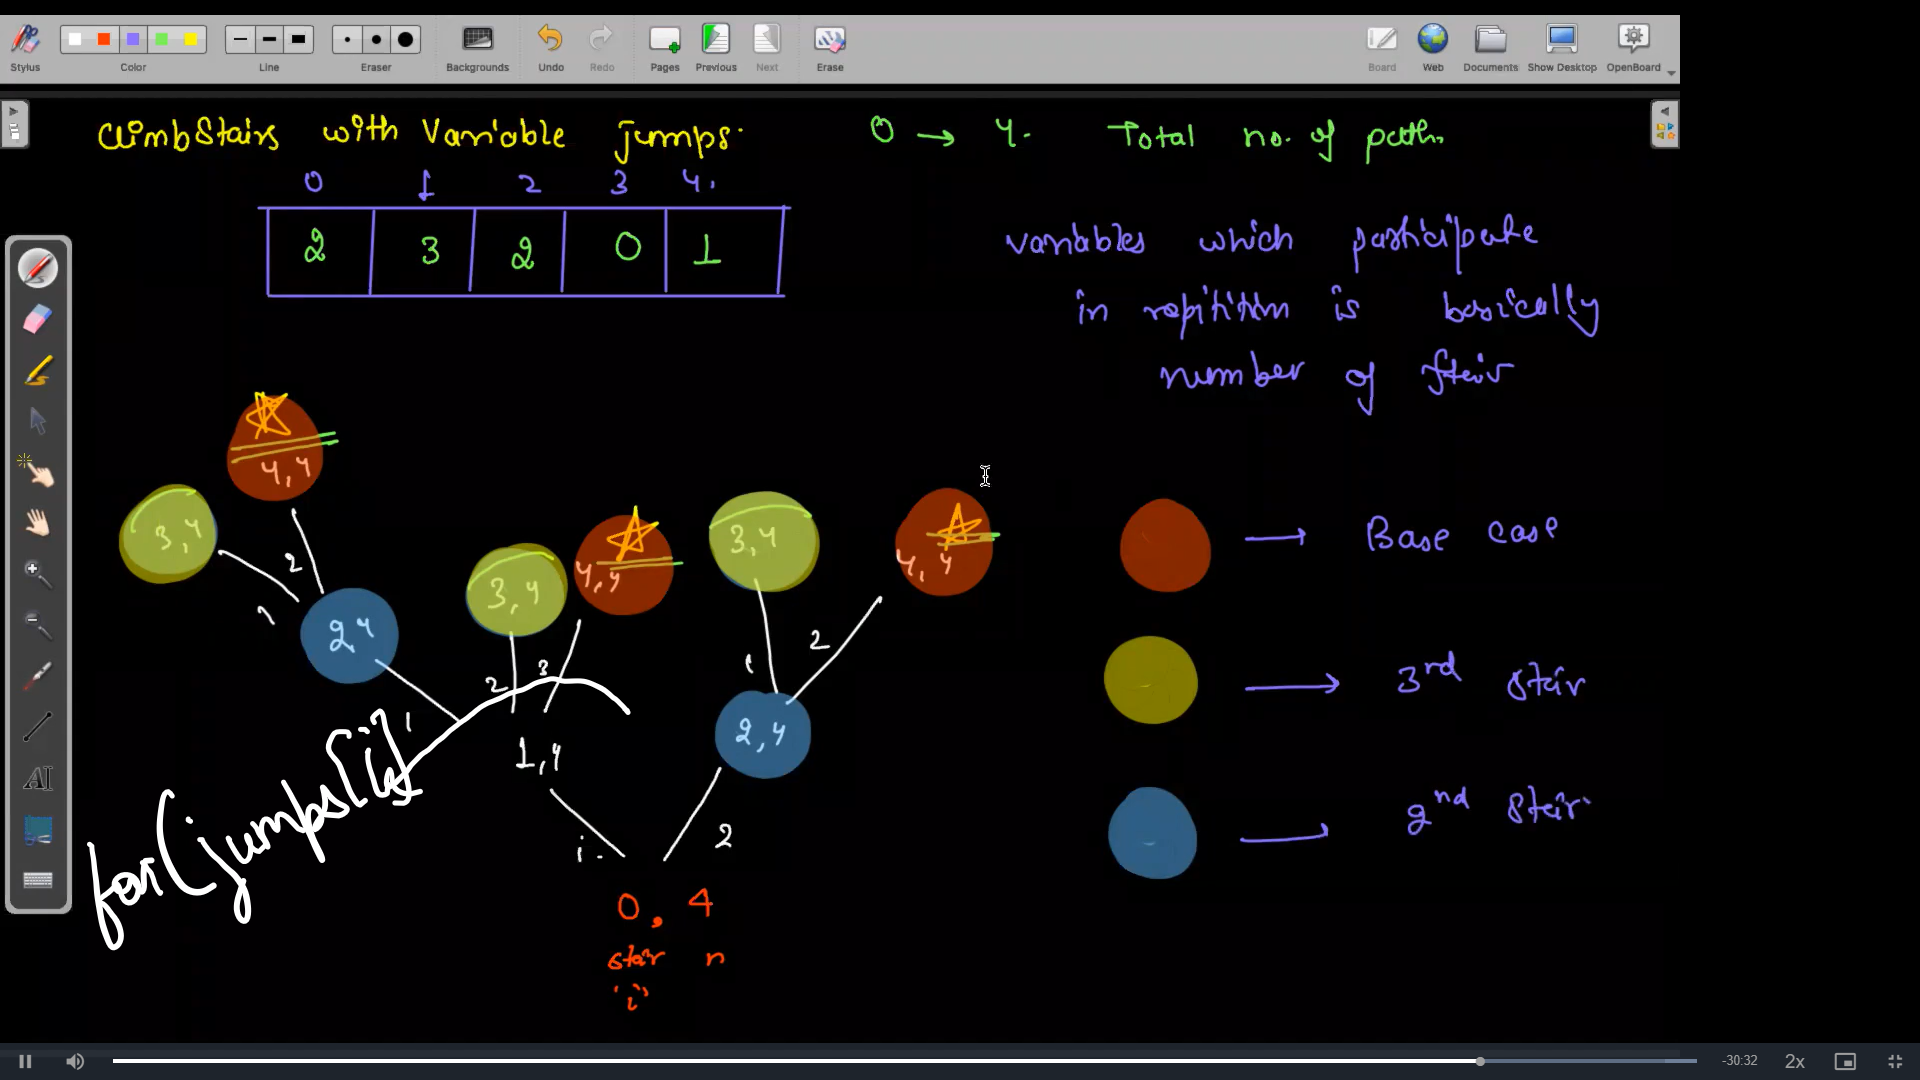 Stylus
Color
Line
Eraser
Backgrounds
Undo
Redo
Pages
Previous
Next
Erase
Board
Web
Documents
Show Desktop
OpenBoard
ClimbStairs with Variable jumps.
0 → 4. Total no. of path.
0 1 2 3 4.
2 3 2 0 1
variables which participate
in repitition is basically
number of stair
4,4
3,4
2
1
2 4
3,4
4,4
2
3
1
1,4
3,4
4,4
1
2
2,4
2
0, 4
stair n
"i"
for(jumps[i]
→ Base case
→ 3rd stair
→ 2nd stair
-30:32
2x